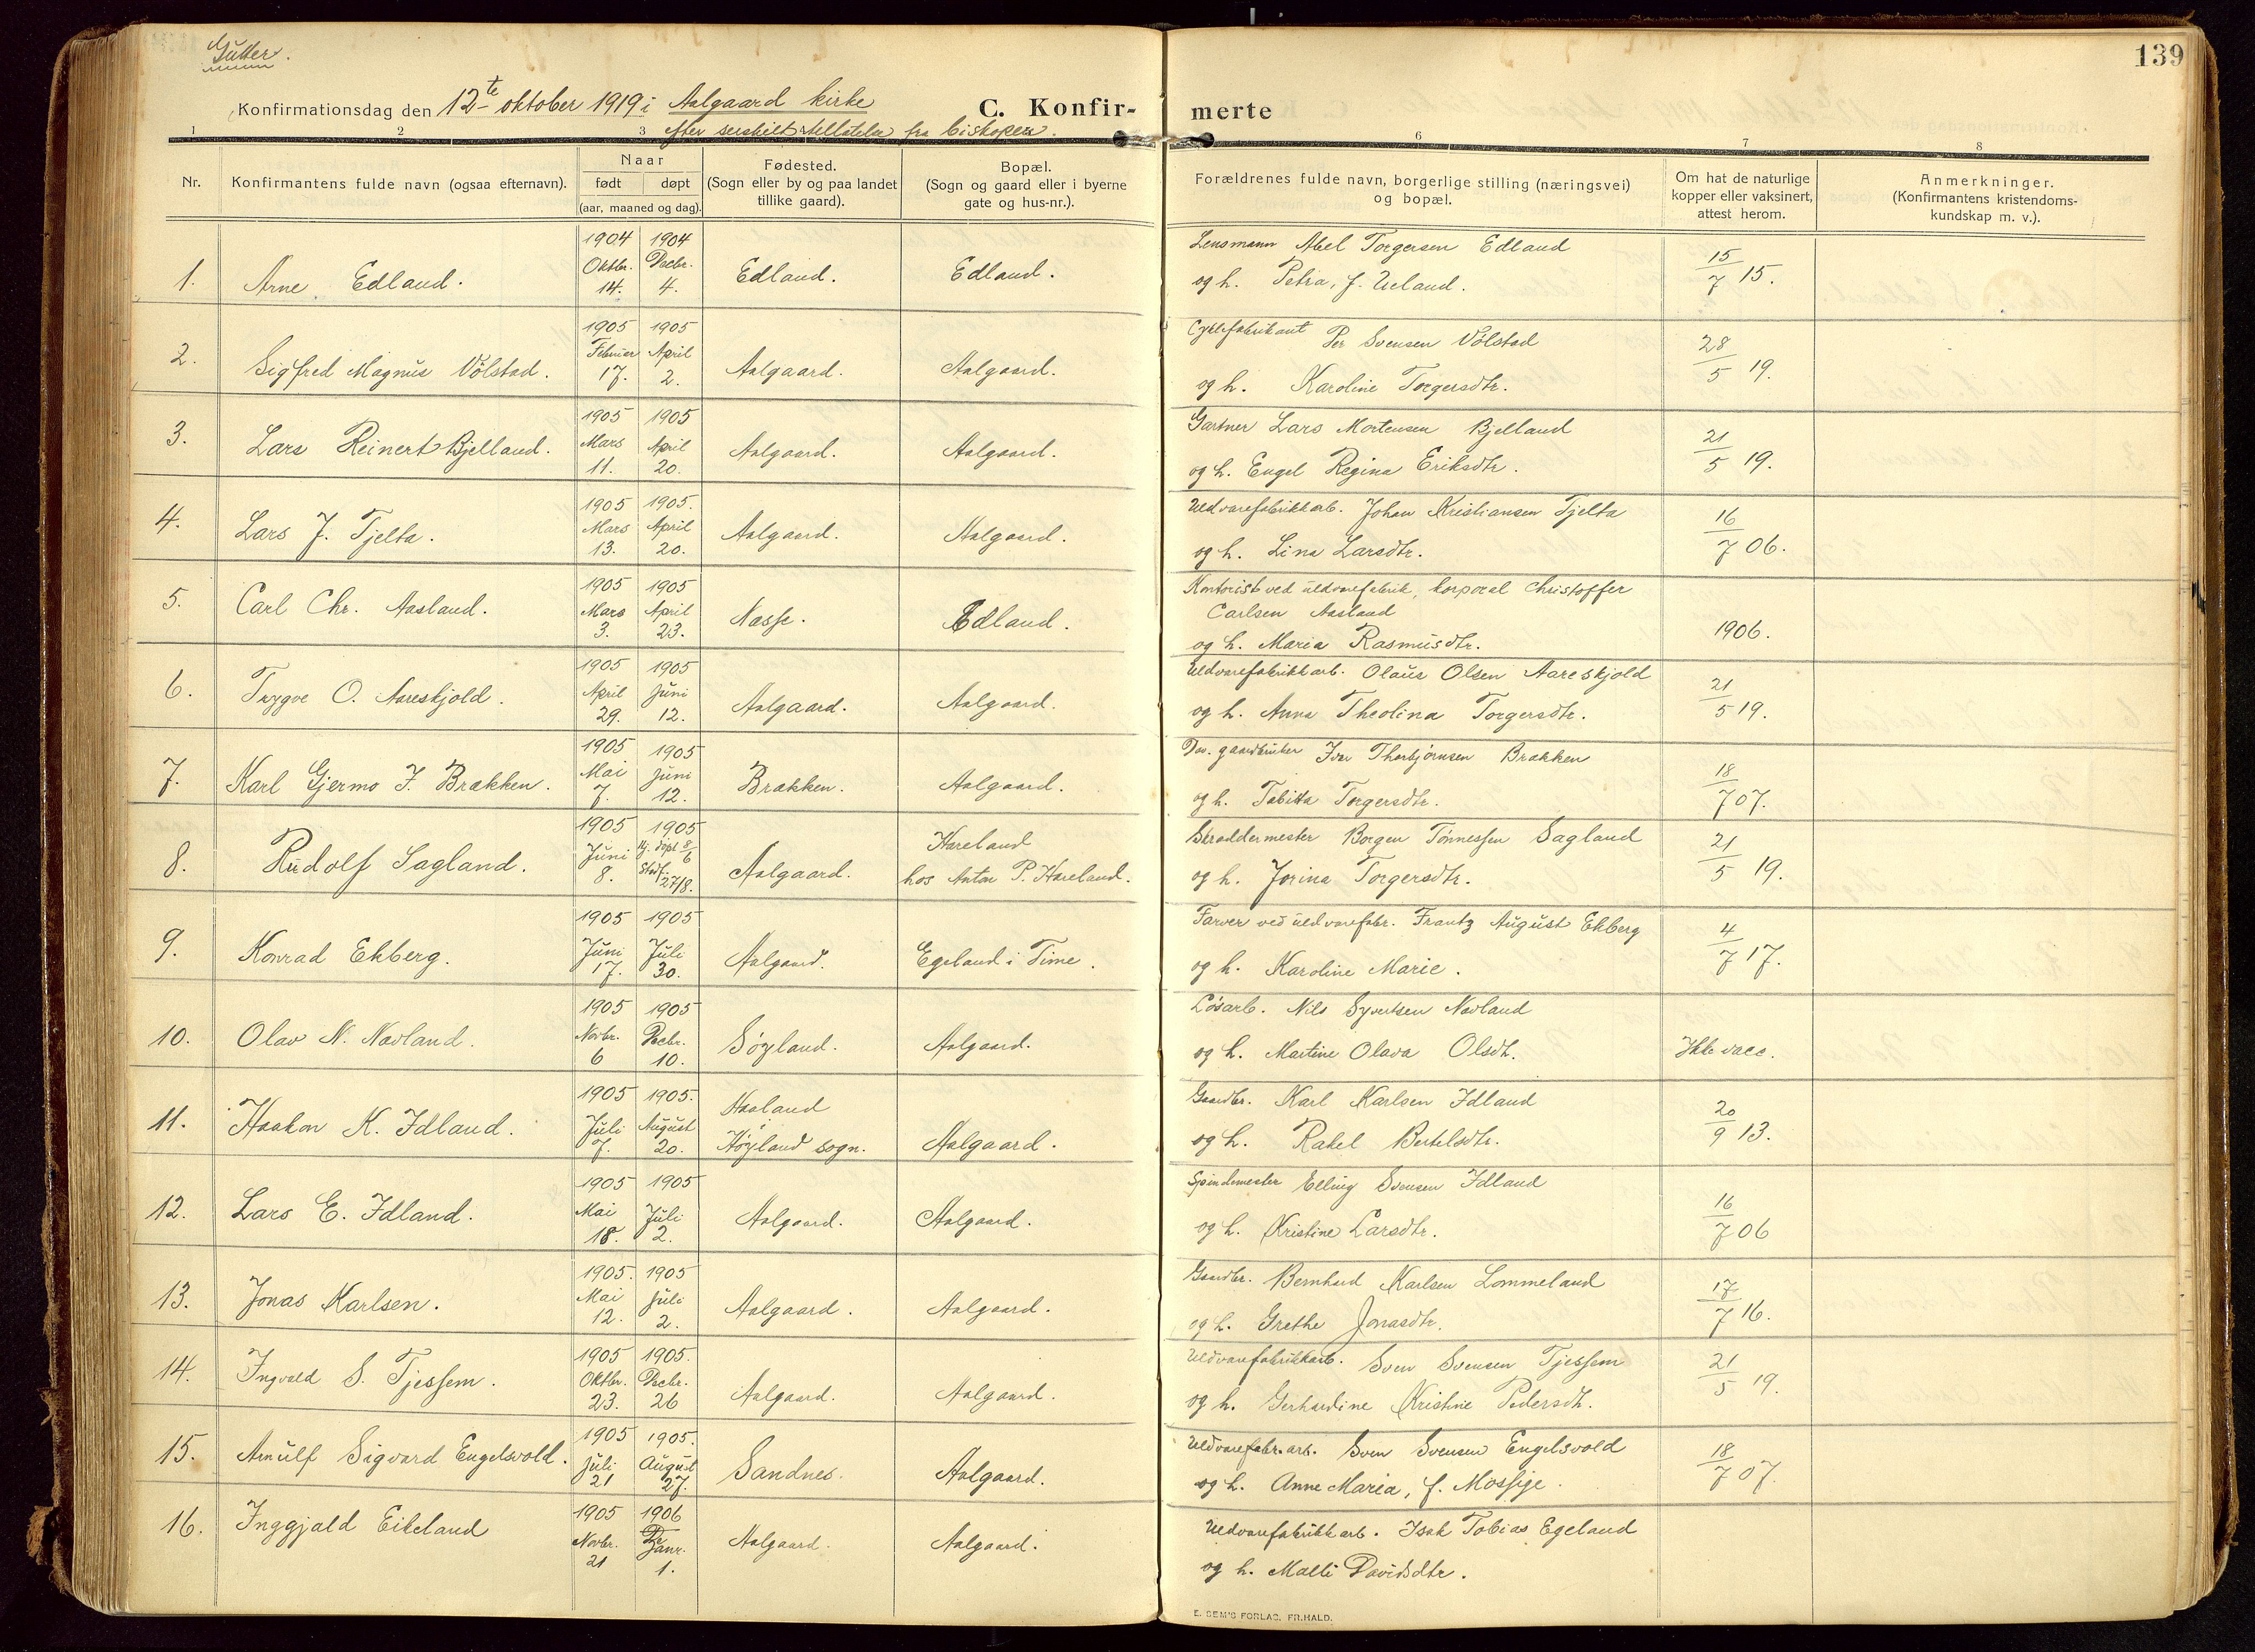 Gutter.
139
Konfirmationsdag den 12te oktober 1919 i Aalgaard kirke
efter serskilt tillatelse fra biskopen.
C. Konfir-
merte
1 2 3 4 5 6 7 8
Nr.
Konfirmantens fulde navn (ogsaa efternavn).
Naar
født døpt
(aar, maaned og dag).
Fødested.
(Sogn eller by og paa landet
tillike gaard).
Bopæl.
(Sogn og gaard eller i byerne
gate og hus-nr.).
Forældrenes fulde navn, borgerlige stilling (næringsvei)
og bopæl.
Om hat de naturlige
kopper eller vaksinert,
attest herom.
Anmerkninger.
(Konfirmantens kristendoms-
kundskap m. v.).
1. Arne Edland. 1904 Oktbr. 14. 1904 Decbr. 4. Edland. Edland.
Lensmann Abel Torgersen Edland
og h. Petra, f. Ueland.
15/7 15.
2. Sigfred Magnus Vølstad. 1905 Februar 17. 1905 April 2. Aalgaard. Aalgaard.
Cyklefabrikant Per Svensen Vølstad
og h. Karoline Torgersdtr.
28/5 19.
3. Lars Reinert Bjelland. 1905 Mars 11. 1905 April 20. Aalgaard. Aalgaard.
Gartner Lars Mortensen Bjelland
og h. Engel Regina Eriksdtr.
21/5 19.
4. Lars J. Tjelta. 1905 Mars 13. 1905. April 20. Aalgaard. Aalgaard.
Uldvarefabrikkarb. Johan Kristiansen Tjelta
og h. Lina Larsdtr.
16/7 06.
5. Carl Chr. Aasland. 1905 Mars 3. 1905 April 23. Næsse. Edland.
Kontorist ved uldvarefabrik, korporal Christoffer
Carlsen Aasland
og h. Maria Rasmusdtr.
1906.
6. Trygve O. Aareskjold. 1905 April 29. 1905 Juni 12. Aalgaard. Aalgaard.
Uldvarefabrikkarb. Olaus Olsen Aareskjold
og h. Anna Theolina Torgersdtr.
21/5 19.
7. Karl Gjermo I. Brækken. 1905 Mai 7. 1905 Juni 12. Brækken. Aalgaard.
gaardbruker Ivar Thorbjørnsen Brækken
og h. Tabitta Torgersdtr.
18/7 07.
8. Rudolf Sagland. 1905 Juni 8. 1905 Hj. døpt 8/6 Stadf. 27/8. Aalgaard. Hareland
hos Anton P. Hareland.
Skræddermester Borgen Tønnessen Sagland
og h. Jorina Torgersdtr.
21/5 19.
9. Konrad Ekberg. 1905 Juni 17. 1905 Juli 30. Aalgaard. Egeland i Time.
Farver ved uldvarefabr. Frantz August Ekberg
og h. Karoline Marie.
4/7 17.
10. Olav N. Nævland. 1905 Novbr. 6 1905 Decbr. 10. Søyland. Aalgaard.
Løsarb. Nils Syvertsen Nævland
og h. Martine Olava Olsdt.
Ikke vacc.
11. Haakon K. Idland. 1905 Juli 7. 1905. August 20. Haaland
Høyland sogn. Aalgaard.
Gaardbr. Karl Karlsen Idland
og h. Rakel Bertelsdtr.
20/9 13.
12. Lars E. Idland. 1905 Mai 18. 1905 Juli 2. Aalgaard. Aalgaard.
Spindemester Elling Svensen Idland
og h. Kristine Larsdtr.
16/7 06
13. Jonas Karlsen. 1905. Mai 12. 1905 Juli 2. Aalgaard. Aalgaard.
Gaardbr. Bernhard Karlsen Lommeland
og h. Grethe Jonasdtr.
17/7 16.
14. Ingvald S. Tjessem. 1905 Oktbr. 23. 1905. Decbr. 26 Aalgaard. Aalgaard.
Uldvarefabrikkarb. Sven Svensen Tjessem
og h. Gerhardine Kristine Pedersdt.
21/5 19.
15. Arnulf Sigvard Engelsvold. 1905 Juli 21 1905. August 27. Sandnes. Aalgaard.
Uldvarefabr.arb. Sven Svensen Engelsvold
og h. Anne Maria, f. Mossige.
18/7 07.
16. Inggjald Eikeland 1905 Novbr. 21 1906 Janr. 1. Aalgaard. Aalgaard.
Uldvarefabrikkarb. Isak Tobias Egeland
og h. Malli Davidsdtr.
E. SEM'S FORLAG, FR.HALD.